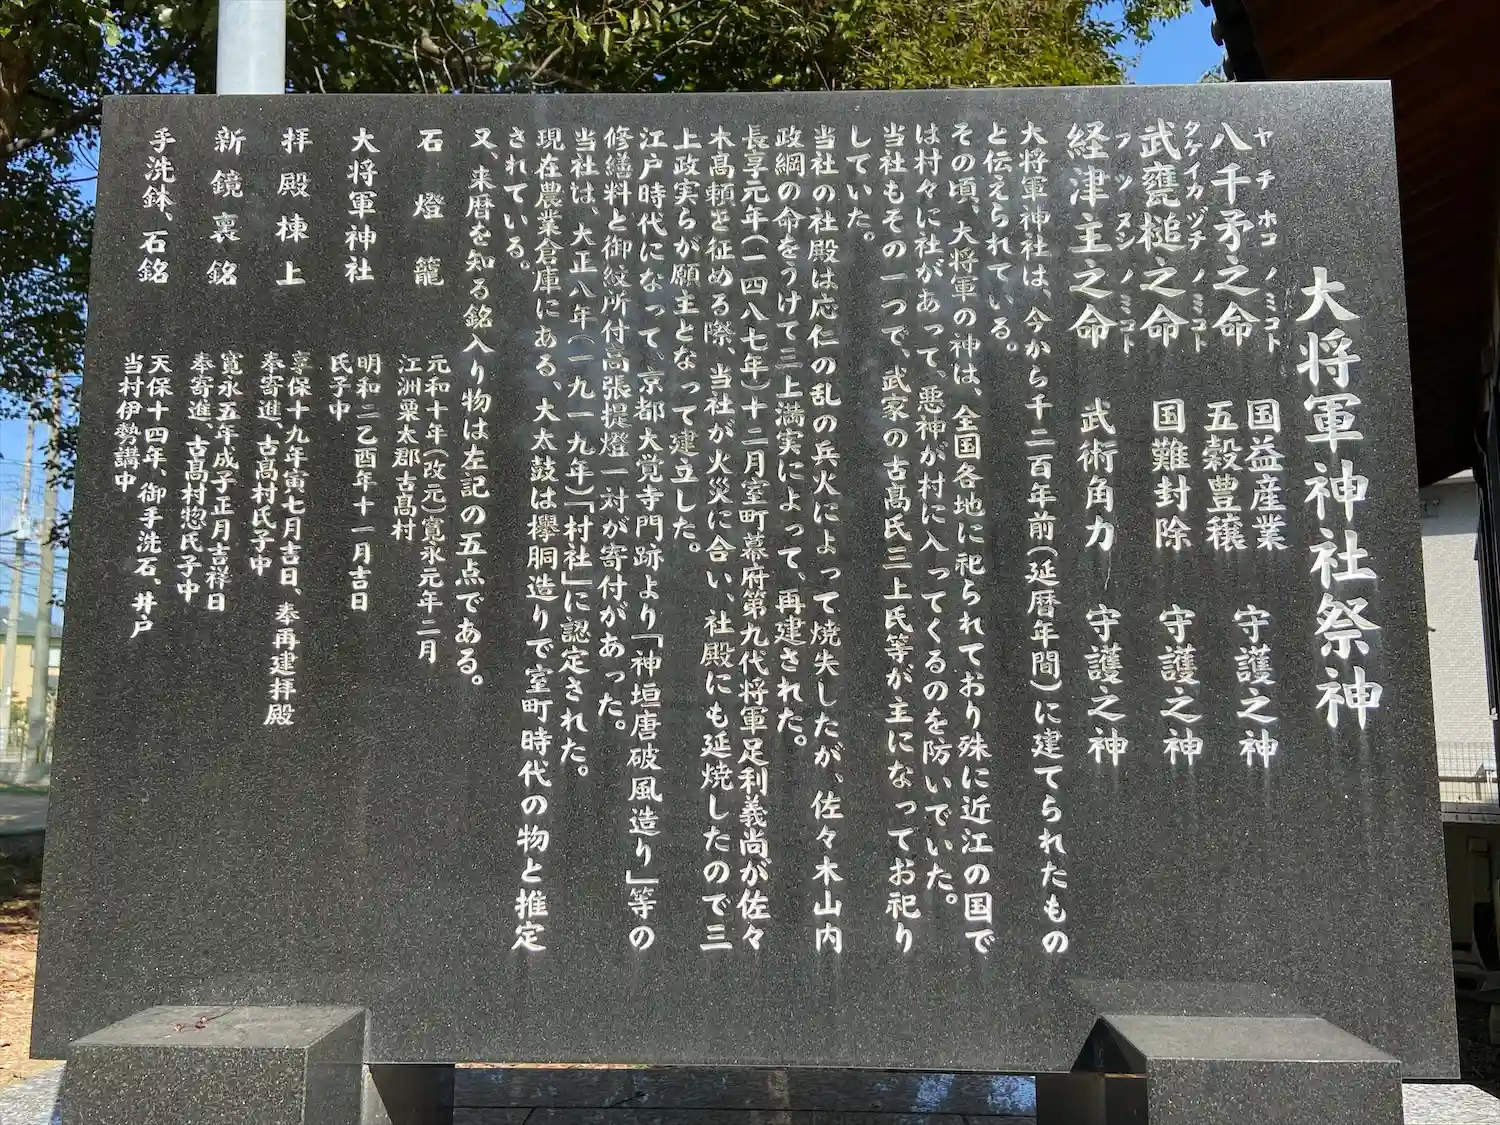 大将軍神社祭神
八千矛之命 国益産業 五穀豊穣 守護之神
ヤチホコノミコト
武甕槌之命 国難封除 守護之神
タケイカヅチノミコト
経津主之命 武術角力 守護之神
フツヌシノミコト
大将軍神社は、今から千二百年前(延暦年間)に建てられたもの
と伝えられている。
その頃、大将軍の神は、全国各地に祀られており殊に近江の国で
は村々に社があって、悪神が村に入ってくるのを防いでいた。
当社もその一つで、武家の古髙氏三上氏等が主になってお祀り
していた。
当社の社殿は応仁の乱の兵火によって焼失したが、佐々木山内
政綱の命をうけて三上満実によって、再建された。
長享元年(一四八七年)十二月室町幕府第九代将軍足利義尚が佐々
木髙頼を征める際、当社が火災に合い、社殿にも延焼したので三
上政実らが願主となって建立した。
江戸時代になって、京都大覚寺門跡より「神垣唐破風造り」等の
修繕料と御紋所付高張提燈一対が寄付があった。
当社は、大正八年(一九一九年)「村社」に認定された。
現在農業倉庫にある、大太鼓は欅胴造りで室町時代の物と推定
されている。
又、来暦を知る銘入り物は左記の五点である。
石燈籠 元和十年(改元)寛永元年二月
江洲栗太郡古髙村
大将軍神社 明和二乙酉年十一月吉日
氏子中
拝殿棟上 享保十九年寅七月吉日、奉再建拝殿
奉寄進、古髙村氏子中
新鏡裏銘 寛永五年成子正月吉祥日
奉寄進、古髙村惣氏子中
手洗鉢、石銘 天保十四年、御手洗石、井戸
当村伊勢講中